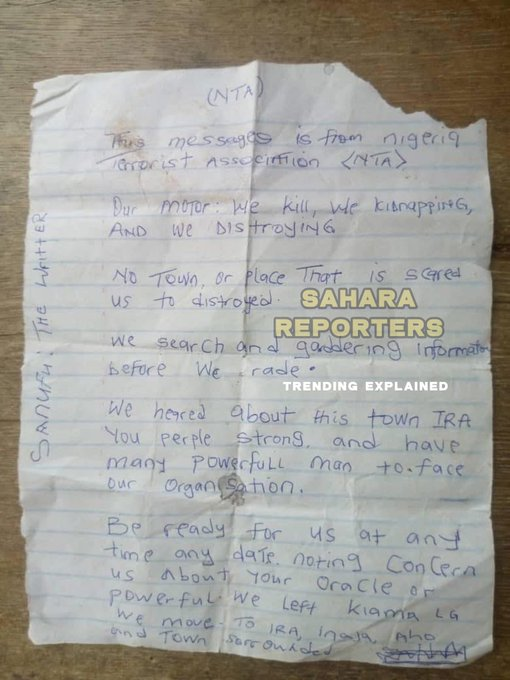 (NTA)
This messages is from nigeria
Terrorist Association (NTA).
Our motor: we kill, we kidnapping,
AND we DIStroying
NO TOWN, or place That is scared
us to distroyed.
SAHARA
REPORTERS
we search and gaddering informator
before we rade.
TRENDING EXPLAINED
We heared about this town IRA
You perple strong. and have
many powerfull man to face
our organisation.
Be ready for us at any
time any date. noting concern
us about your oracle or
powerful. we left kiama LG
we move. To IRA, inaja, Aho
and Town sorrounded
SANUFU: THE WRITTER